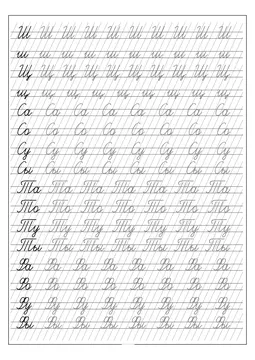 Ш Ш Ш Ш Ш Ш Ш Ш Ш
ш ш ш ш ш ш ш ш ш
Щ Щ Щ Щ Щ Щ Щ Щ Щ Щ
щ щ щ щ щ щ щ щ щ
Са Са Са Са Са Са Са Са
Со Со Со Со Со Со Со Со
Су Су Су Су Су Су Су Су
Сы Сы Сы Сы Сы Сы Сы Сы
Та Та Та Та Та Та Та
То То То То То То То
Ту Ту Ту Ту Ту Ту Ту
Ты Ты Ты Ты Ты Ты Ты
Да Да Да Да Да Да Да Да
До До До До До До До До
Ду Ду Ду Ду Ду Ду Ду Ду
Ды Ды Ды Ды Ды Ды Ды Ды